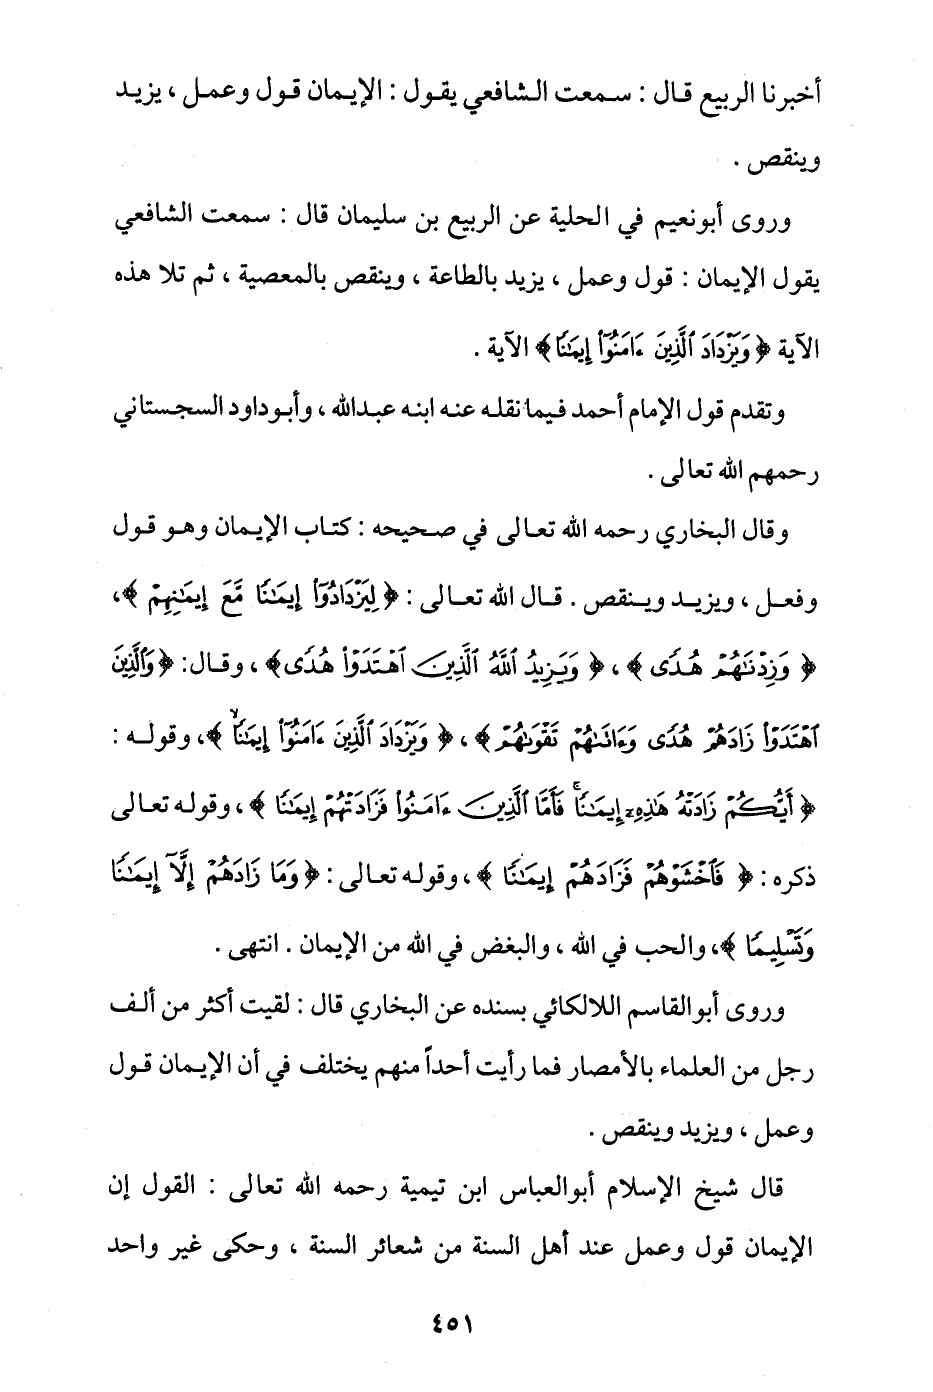 أخبرنا الربيع قال : سمعت الشافعي يقول : الإيمان قول وعمل ، يزيد
وينقص .
وروى أبونعيم في الحلية عن الربيع بن سليمان قال : سمعت الشافعي
يقول الإيمان : قول وعمل ، يزيد بالطاعة ، وينقص بالمعصية ، ثم تلا هذه
الآية ﴿ وَيَزْدَادَ ٱلَّذِينَ ءَامَنُوٓا۟ إِيمَـٰنًا ﴾ الآية .
وتقدم قول الإمام أحمد فيما نقله عنه ابنه عبدالله ، وأبوداود السجستاني
رحمهم الله تعالى .
وقال البخاري رحمه الله تعالى في صحيحه : كتاب الإيمان وهو قول
وفعل ، ويزيد وينقص . قال الله تعالى : ﴿ لِيَزْدَادُوٓا۟ إِيمَـٰنًا مَّعَ إِيمَـٰنِهِمْ ﴾،
﴿ وَزِدْنَـٰهُمْ هُدًى ﴾ ، ﴿ وَيَزِيدُ ٱللَّهُ ٱلَّذِينَ ٱهْتَدَوْا۟ هُدًى ﴾ ، وقال: ﴿ وَٱلَّذِينَ
ٱهْتَدَوْا۟ زَادَهُمْ هُدًى وَءَاتَىٰهُمْ تَقْوَىٰهُمْ ﴾ ، ﴿ وَيَزْدَادَ ٱلَّذِينَ ءَامَنُوٓا۟ إِيمَـٰنًا ۙ ﴾، وقوله :
﴿ أَيُّكُمْ زَادَتْهُ هَـٰذِهِۦٓ إِيمَـٰنًا ۚ فَأَمَّا ٱلَّذِينَ ءَامَنُوا۟ فَزَادَتْهُمْ إِيمَـٰنًا ﴾ ، وقوله تعالى
ذكره : ﴿ فَٱخْشَوْهُمْ فَزَادَهُمْ إِيمَـٰنًا ﴾ ، وقوله تعالى : ﴿ وَمَا زَادَهُمْ إِلَّآ إِيمَـٰنًا
وَتَسْلِيمًا ﴾، والحب في الله ، والبغض في الله من الإيمان . انتهى .
وروى أبوالقاسم اللالكائي بسنده عن البخاري قال : لقيت أكثر من ألف
رجل من العلماء بالأمصار فما رأيت أحداً منهم يختلف في أن الإيمان قول
وعمل ، ويزيد وينقص .
قال شيخ الإسلام أبوالعباس ابن تيمية رحمه الله تعالى : القول إن
الإيمان قول وعمل عند أهل السنة من شعائر السنة ، وحكى غير واحد
٤٥١